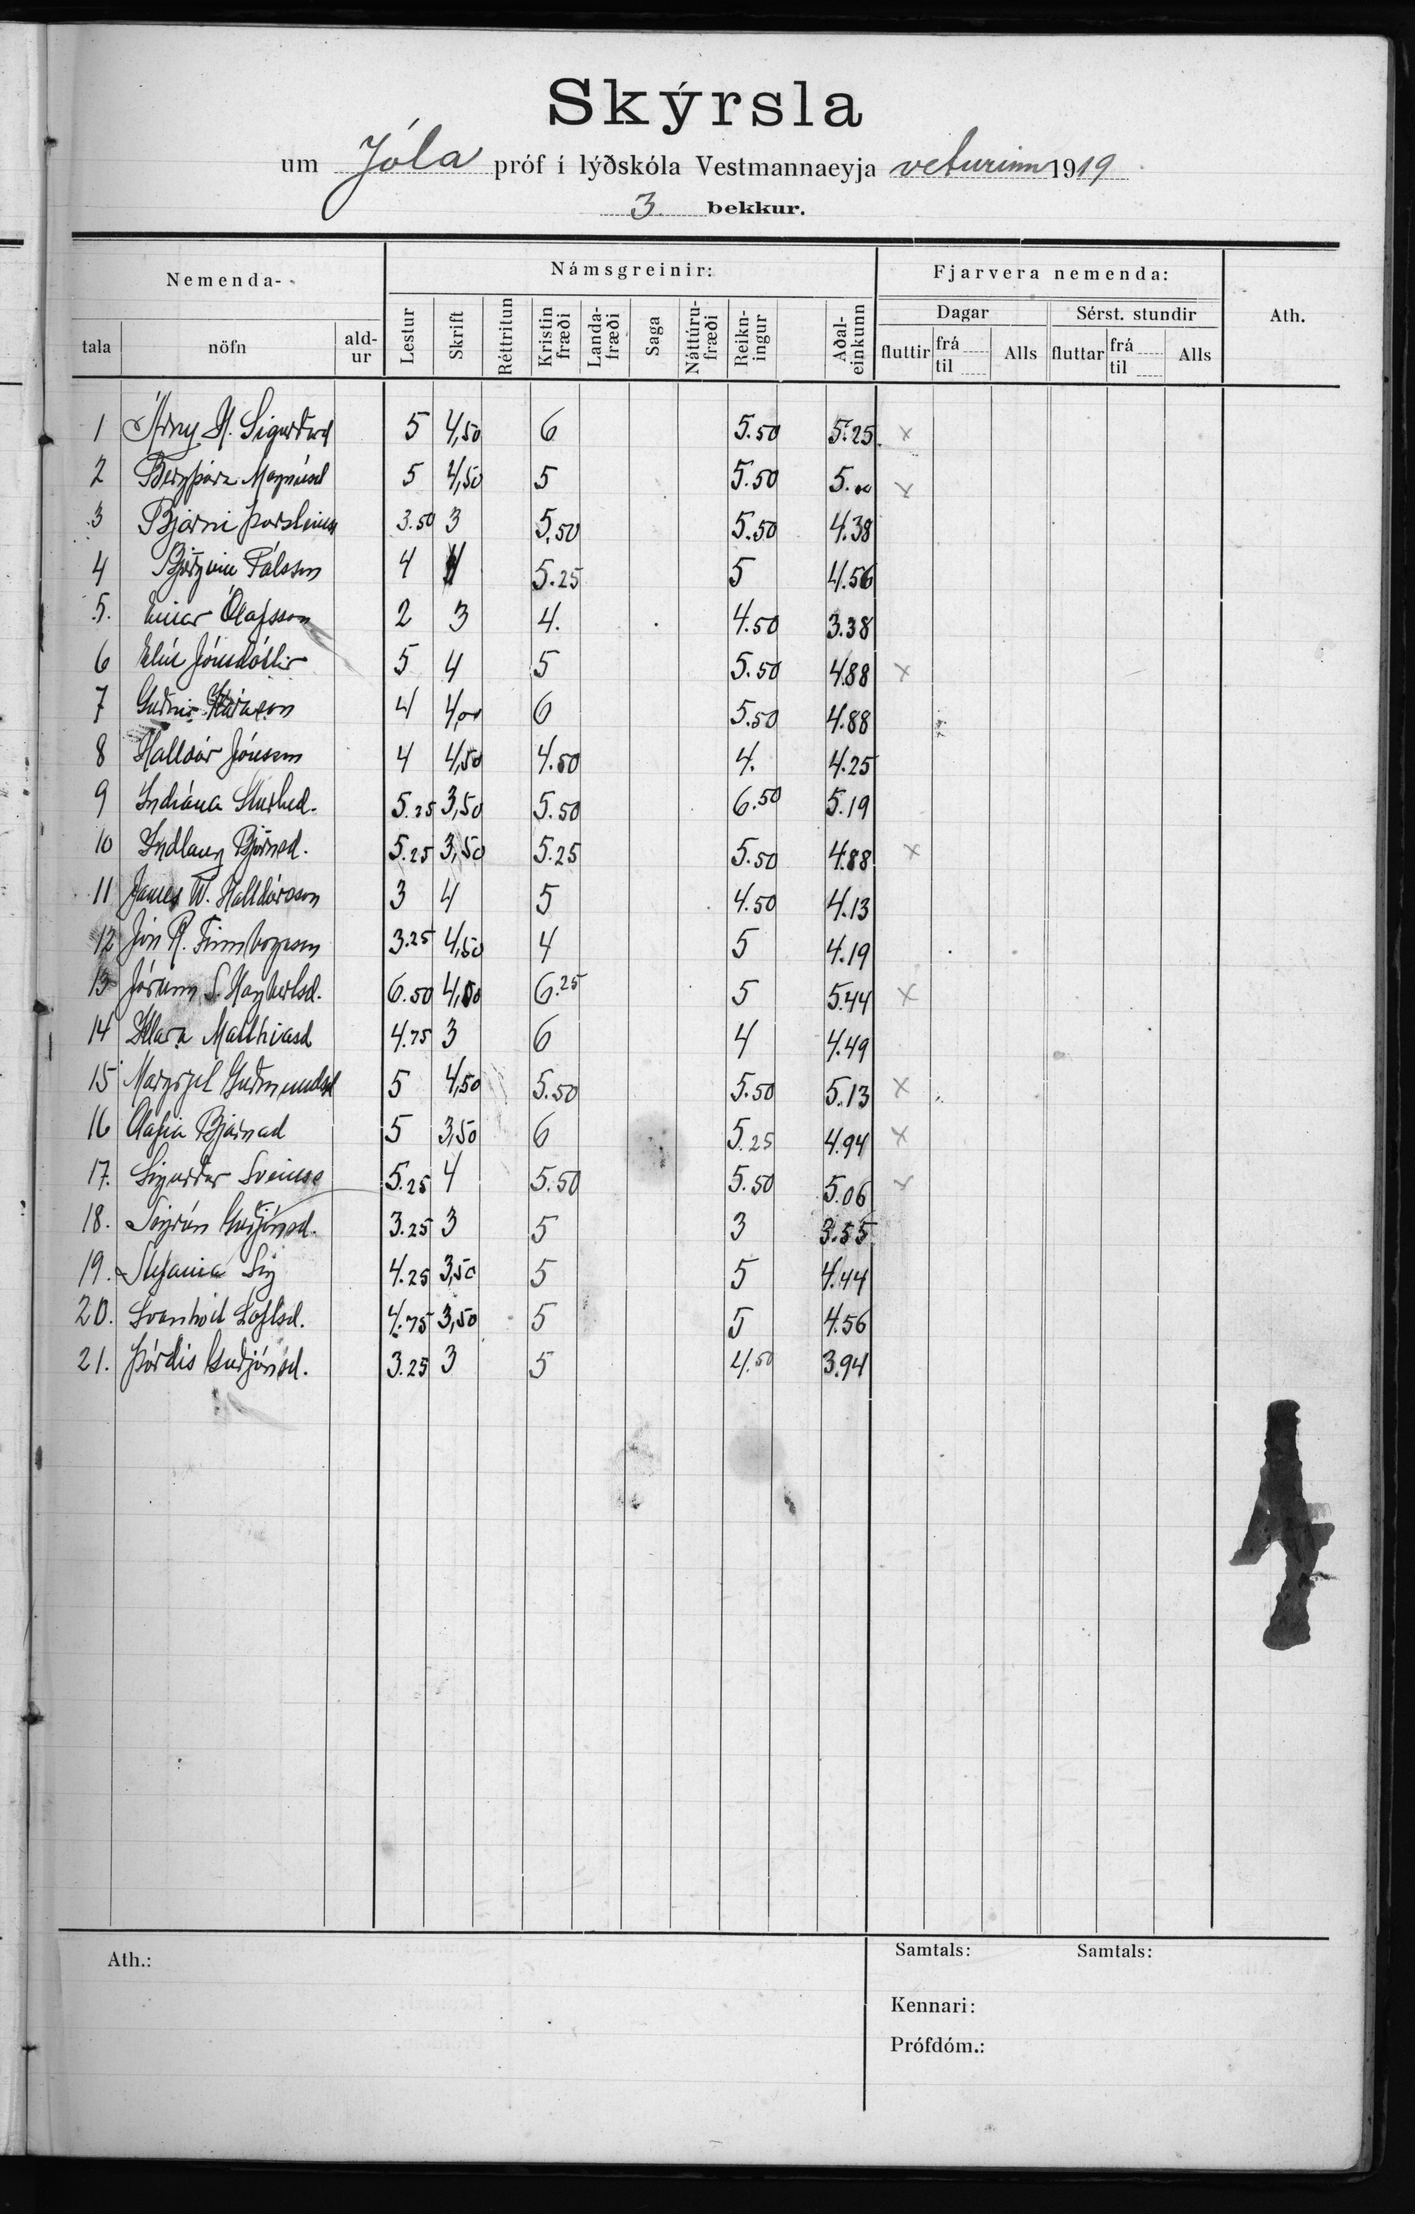 Skýrsla
um Jóla próf í lýðskóla Vestmannaeyja veturinn 1919
3. bekkur.
Nemenda- Námsgreinir: Fjarvera nemenda: Ath.
Dagar Sérst. stundir
tala nöfn ald-ur Lestur Skrift Réttritun Kristin fræði Landa-fræði Saga Náttúru-fræði Reikn-ingur Aðal-einkunn fluttir frá til Alls fluttar frá til Alls
1 Árny M. Sigurðard 5 4,50 6 5.50 5.25 x
2 Bergþóra Magnúsd 5 4,50 5 5.50 5.00 x
3 Bjarni Þorsteinss 3.50 3 5,50 5.50 4.38
4 Björgvin Pálsson 4 4 5.25 5 4.56
5. Einar Ólafsson 2 3 4. 4.50 3.38
6 Elín Jónsdóttir 5 4 5 5.50 4.88 x
7 Guðni 4 4,00 6 5.50 4.88
8 Halldór Jónsson 4 4,50 4.50 4. 4.25
9 Indíana Sturlud. 5.25 3,50 5.50 6.50 5.19
10 Indlaug Björnsd. 5.25 3,50 5.25 5.50 4.88 x
11 James W. Halldórsson 3 4 5 4.50 4.13
12 Jón R. Finnbogason 3.25 4,50 4 5 4.19
13 Jórunn S. 6.50 4,50 6.25 5 5.44 x
14 Klara Matthíasd 4.75 3 6 4 4.49
15 Margrjet Guðmundsd 5 4,50 5.50 5.50 5.13 x
16 Ólafía Bjarnad 5 3,50 6 5.25 4.94 x
17. Sigurður Sveinss 5.25 4 5.50 5.50 5.06 x
18. Sigrún Guðjónsd. 3.25 3 5 3 3.55
19. Stefanía Sig 4.25 3,50 5 5 4.44
20. Svanhvít Loftsd. 4.75 3,50 5 5 4.56
21. Þórdís Guðjónsd. 3.25 3 5 4.50 3.94
Ath.: Samtals: Samtals:
Kennari:
Prófdóm.: